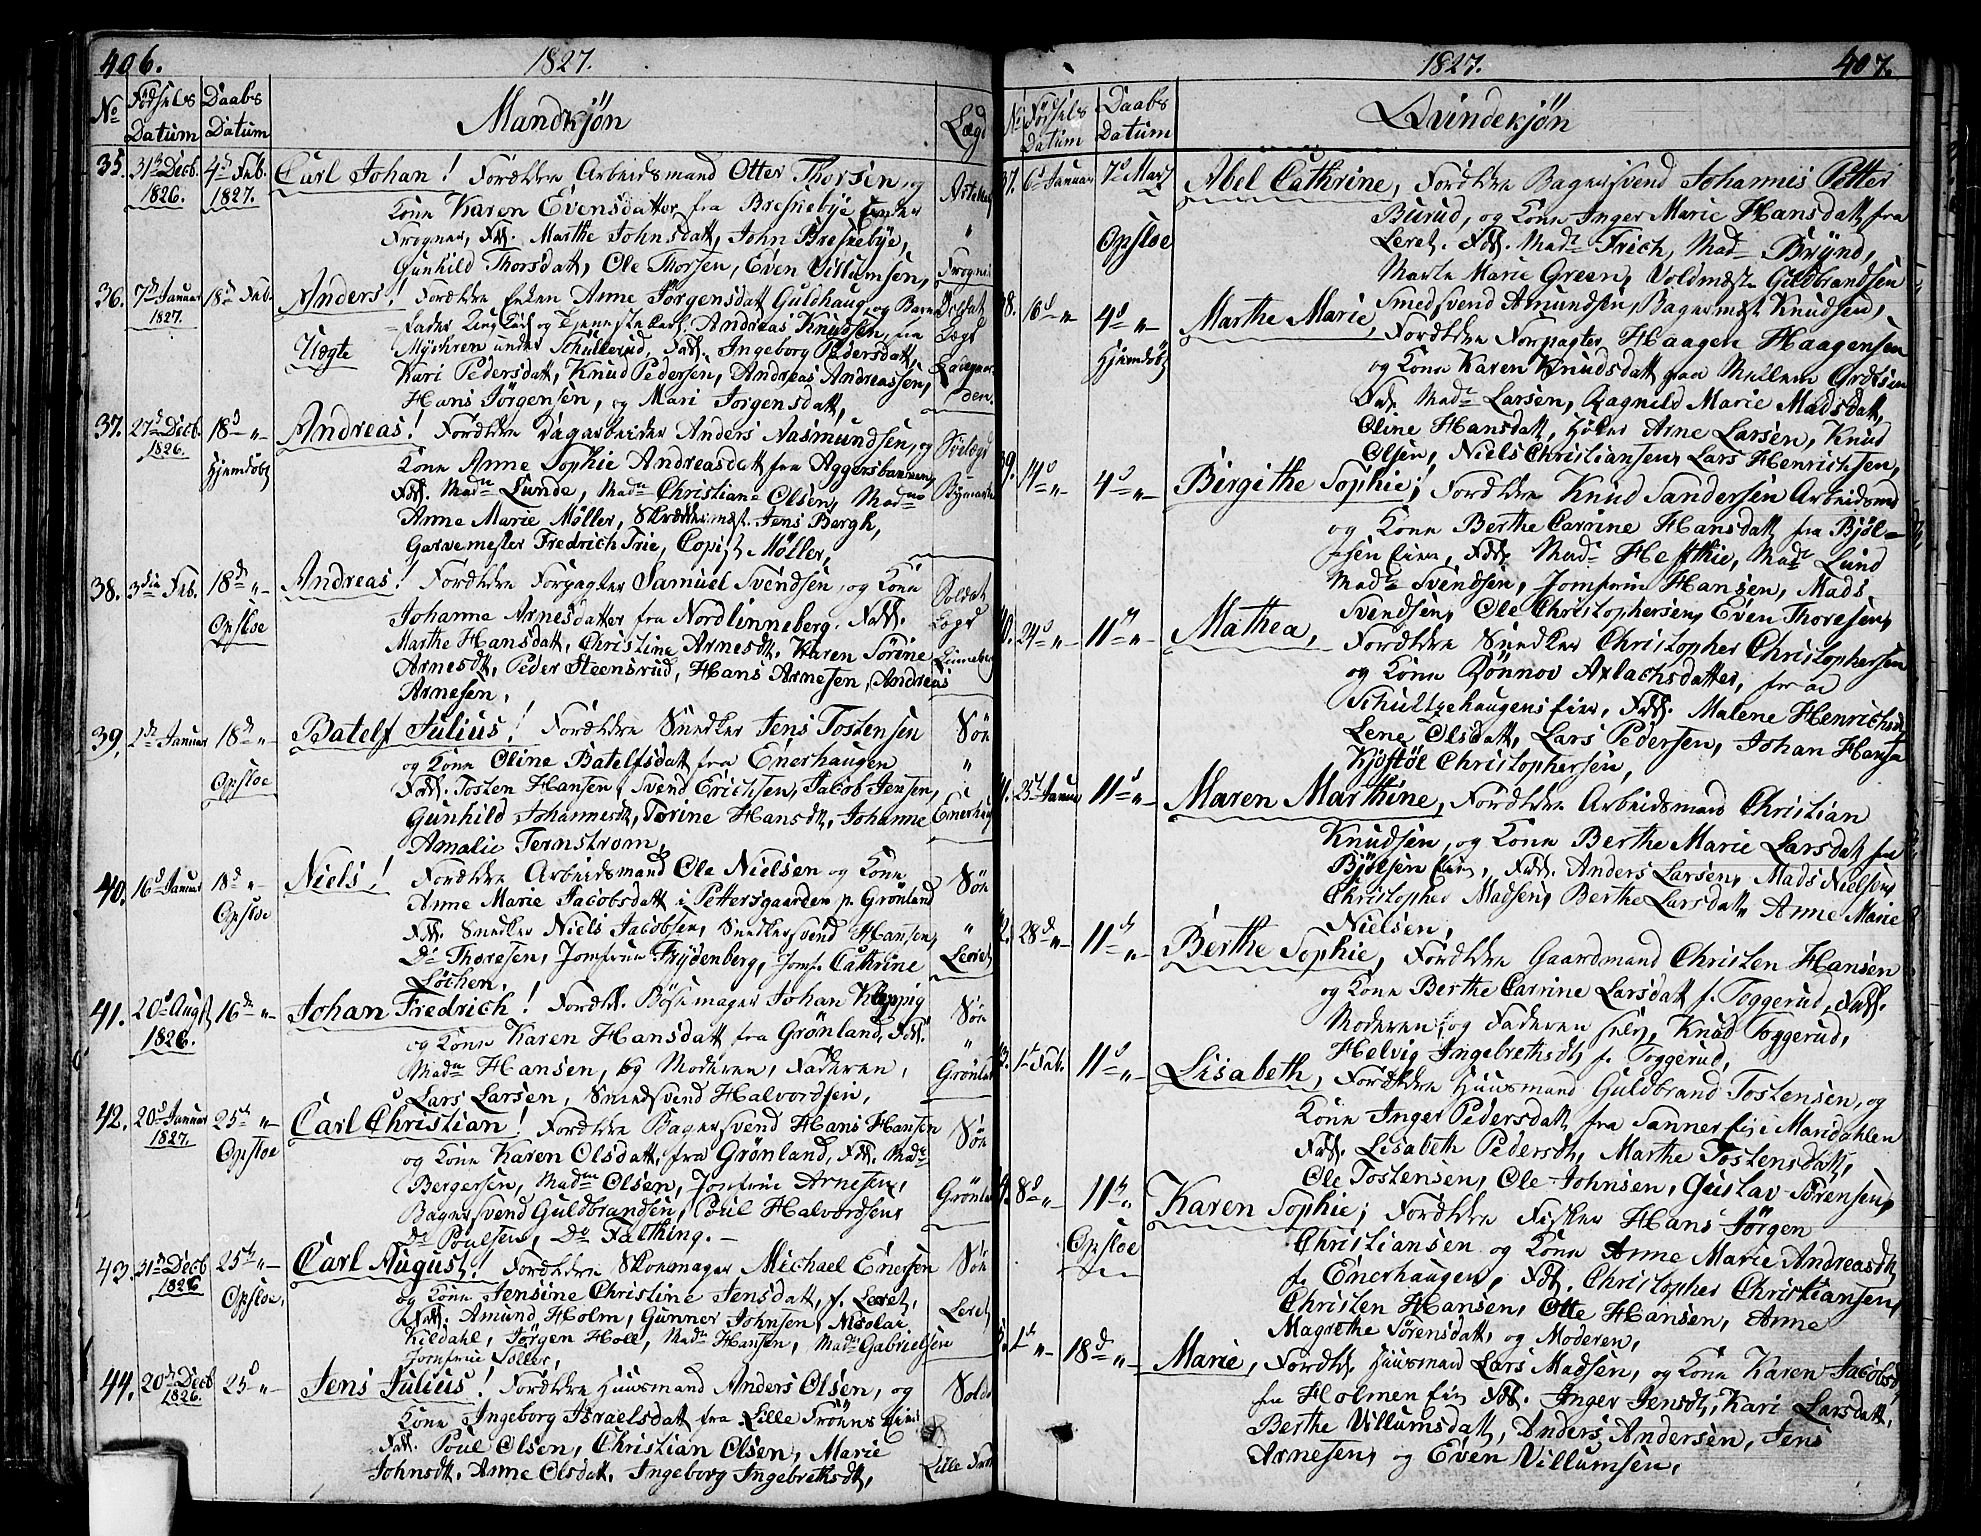 406. 1827.
No Födsels Datum Daabs Datum Mandkjön Lægd
35. 31te Decb. 1826. 4de Feb. 1827. Carl Johan! Forældre Arbeidsmand Otter Thorsen og
Kone Karen Evensdatter fra Bresnebye under
Frogner, Fdd. Marthe Johnsdatt, John Bresnebye,
Gunhild Thorsdatt, Ole Thorsen, Even Villumsen,
36. 7de Januar 1827. 18de Feb. Anders! Forældre Enken Anne Jörgensdatt Guldhaug, og Barne
fader Ung Carl og Tjeneste Carl Andreas Knudsen fra
Uægte Myhren under Schullerud, Fdd. Ingeborg Pedersdatt,
Kari Pedersdatt, Knud Pedersen, Andreas Andreassen,
Hans Jörgensen, og Mari Jörgensdatt,
37. 27de Decb. 1826. 18de " Hjemdöbt Andreas! Forældre Dagarbeider Anders Aasmundsen, og
Kone Anne Sophie Andreasdatt fra Aggersbakken,
Fdd. Madm Lunde, Madm Christiane Olsen, Madm
Anne Marie Möller, Skræddermest. Jens Bergh,
Garvemester Fredrich Frie, Copist Möller,
38. 3die Feb. 18de " Opsloe Andreas! Forældre Forpagter Samuel Svendsen, og Kone Soldat
Johanne Arnesdatter fra Nordlinneberg. Fdd. Lægd
Marthe Hansdatt, Christine Arnesdt. Karen Sörine Linneberg
Arnesdt, Peder Steensrud, Hans Arnesen, Andreas
Arnesen,
39. 2de Januar 18de " Opsloe Batelf Julius! Forældre Snedker Jens Tostensen Söe
og Kone Oline Batelfsdatt fra Enerhaugen "
Fdd. Tosten Hansen, Svend Erichsen, Jacob Jensen,
Gunhild Johannesdt, Torine Hansdt, Johanne Enerhaug
Amalie Ternstrom,
40. 16de Januar 18de " Opsloe Niels! Forældre Arbeidsmand Ole Nielsen og Kone Söe
Anne Marie Jacobsdatt i Pettersgaarden p. Grönland
Fdd. Snedker Niels Jacobsen, Snedkersvend Hansen, "
Do Thoresen, Jomfrue Frydenberg, Jomf. Cathrine Leret
Lochen,
41. 20de Augst 1826. 16de " Johan Fredrich! Foræld. Bösemager Johan Keppig Söe
og Kone Karen Hansdatt fra Grönland, Fdd. "
Madm Hansen, og Moderen, Faderen, Grönland
Lars Larsen, Smedsvend Halvordsen,
42. 20de Januar 1827. 25de " Opsloe Carl Christian! Forældre Bagersvend Hans Hansen Söe
og Kone Karen Olsdatt, fra Grönland, Fdd. Madm
Bergersen, Madm Olsen, Jomfrue Arnesen, Grönland
Bagersvend Guldbrandsen, Poul Halvordsen
Do Poulsen, Do Falthing. —
43. 31te Decb 1826 25de " Opsloe, Carl August! Forældre Skomager Michael Enersen Söe
og Kone Jensine Christine Jensdatt, f. Leret,
Fdd. Amund Holm, Gunner Johnsen, Nicolai Leret
Kildahl, Jörgen Holl, Madm Hansen, Madm Gabrielsen
Jomfrue Toller,
44. 20de Decb 1826. 25de " Jens Julius! Forældre Huusmand Anders Olsen, og Solda
Kone Ingeborg Israelsdatt fra Lille Frönns Eier
Fdd. Poul Olsen, Christian Olsen, Marie
Johnsdt. Anne Olsdatt. Ingeborg Ingebrethsdt, Lille Frön
1827. 407.
No Födsels datum Daabs datum Qvindekjön
37. 6te Januar 7de Mart Opsloe Abel Cathrine, Forældre Bagersvend Johannes Petter
Burud, og Kone Inger Marie Hansdatt, fra
Leret. Fdd. Madm Frich, Madm Brynd,
Marte Marie Green, Voldmest. Guldbrandsen
Smedsvend Amundsen, Bagermest Knudsen,
38. 6de " 4de " Hjemdöbt Marthe Marie, Forældre Forpagter Haagen Haagensen
og Kone Karen Knudsdatt paa Mellem Grefsen
Fdd. Madm Larsen, Ragnild Marie Madsdatt,
Oline Hansdatt, Höker Arne Larsen, Knud
Olsen, Niels Christiansen, Lars Henrichsen,
39. 14de " 4de " Birgithe Sophie; Forældre Knud Sandersen Arbeidsmd
og Kone Berthe Carrine Hansdatt fra Bjöl-
sen Eier, Fdd. Madm Heftthie, Madm Lund
Madm Svendsen, Jomfrue Hansen, Mads
Svendsen, Ole Christophersen, Even Thoresen,
40. 24de " 11te " Mathea, Forældre Snedker Christopher Christophersen
og Kone Rönnov Axlachsdatter, fra
Schultzehaugens Eier, Fdd. Malene Henrichsd
Lene Olsdatt, Lars Pedersen, Johan Hansen
Kjöstöl Christophersen,
41. 25de Januar 11te " Maren Marthine, Forældre Arbeidsmand Christian
Knudsen, og Kone Berthe Marie Larsdatt fra
Bjölsen Eier, Fdd. Anders Larsen, Mads Nielsen,
Christopher Madsen, Berthe Larsdatt, Anne Marie
Nielsen,
42. 28de " 11te " Berthe Sophie, Forældre Gaardmand Christen Hansen
og Kone Berthe Carrine Larsdatt f. Toggerud, Fdd.
Moderen, og Faderen selv, Knud Toggerud,
Helvig Ingebrethsdt, f. Toggerud,
43. 1te Feb. 11te " Lisabeth, Forældre Huusmand Guldbrand Tostensen, og
Kone Inger Pedersdatt, fra Sanner Eje i Maridahlen
Fdd. Lisabeth Pedersdt, Marthe Tostensdatt,
Ole Tostensen, Ole Johnsen, Gustav Sörensen,
44. 8de " 11te " Opsloe Karen Sophie; Forældre Fisker Hans Jörgen
Christiansen og Kone Anne Marie Andreasdt
f. Enerhaugen, Fdd. Christopher Christiansen,
Christen Hansen, Otte Hansen, Anne
Magrethe Sörensdatt, og Moderen,
45. 2de " 18de " Marie, Foræld. Huusmand Lars Madsen, og Kone Karen Jacobsd
fra Holmen Eier Fdd. Inger Jensdt, Kari Larsdatt,
Berthe Villumsdatt, Anders Andersen, Jens
Arnesen, og Even Villumsen,